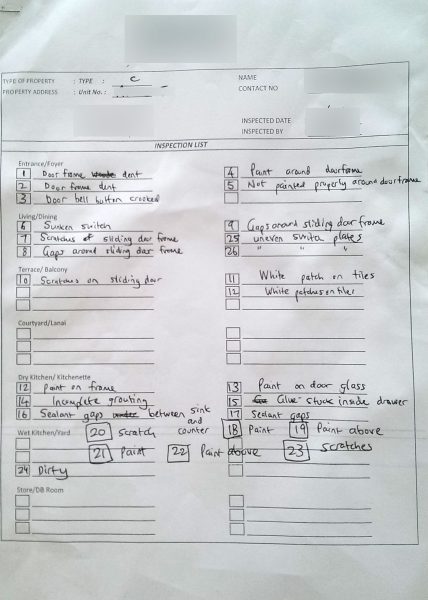 TYPE OF PROPERTY : TYPE : C
NAME
PROPERTY ADDRESS : Unit No. :
CONTACT NO
INSPECTED DATE
INSPECTED BY
INSPECTION LIST
Entrance/Foyer
1 Door frame dent
4 Paint around doorframe
2 Door frame dent
5 Not painted properly around doorframe
3 Door bell button crooked
Living/Dining
6 Sunken switch
9 Gaps around sliding door frame
7 Scratches of sliding door frame
25 uneven switch plates
8 Gaps around sliding door frame
26 " " "
Terrace/ Balcony
10 Scratches on sliding door
11 White patch on tiles
12 White patches on tiles
Courtyard/Lanai
Dry Kitchen/ Kitchenette
12 Paint on frame
13 Paint on door glass
14 Incomplete grouting
15 Glue stuck inside drawer
16 Sealant gaps between sink and counter
17 Sealant gaps
Wet Kitchen/Yard
20 Scratch
18 Paint
19 Paint above
21 Paint
22 Paint above
23 Scratches
24 Dirty
Store/DB Room